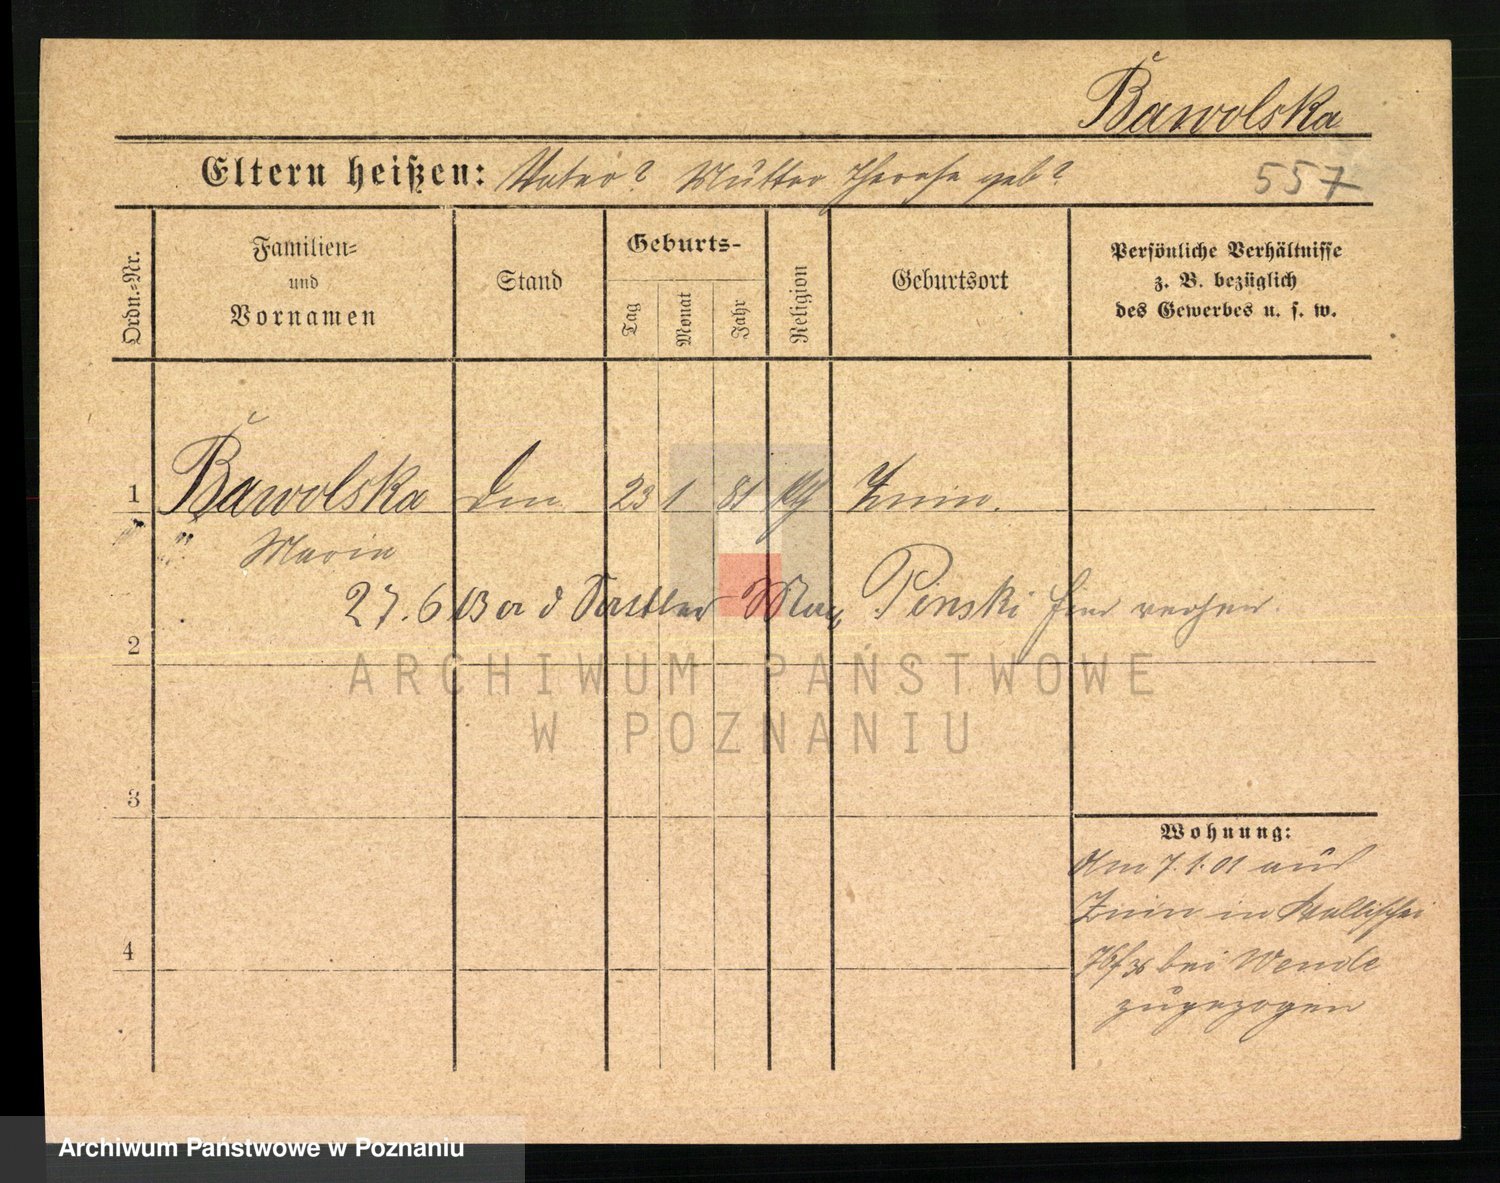 Bawolska
Eltern heißen: Vater? Mutter Therese geb?
557
Ordn.-Nr.
Familien-
und
Vornamen
Stand
Geburts-
Tag
Monat
Jahr
Religion
Geburtsort
Persönliche Verhältnisse
z. B. bezüglich
des Gewerbes u. s. w.
1 Bawolska 23 1 81 Znin.
" Maria
27.6 d Sattler Max Pinski hier
2
ARCHIWUM PAŃSTWOWE
W POZNANIU
3
Wohnung:
Am 7.1.01 aus
Znin in Wallischei
bei Wende
zugezogen
4
Archiwum Państwowe w Poznaniu